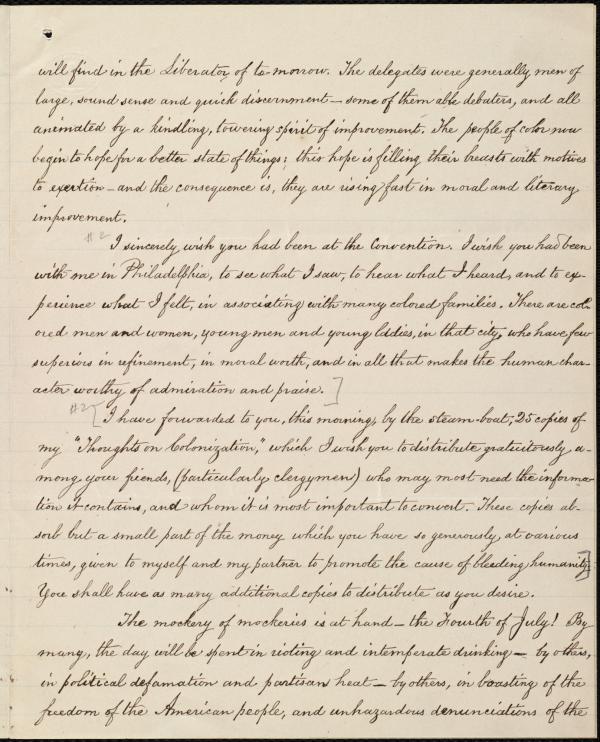 will find in the Liberator of to-morrow. The delegates were generally men of
large, sound sense and quick discernment — some of them able debaters, and all
animated by a kindling, towering spirit of improvement. The people of color now
begin to hope for a better state of things; this hope is filling their breasts with motives
to exertion — and the consequence is, they are rising fast in moral and literary
improvement.
#2
I sincerely wish you had been at the Convention. I wish you had been
with me in Philadelphia, to see what I saw, to hear what I heard, and to ex-
perience what I felt, in associating with many colored families. There are col-
ored men and women, young men and young ladies, in that city, who have few
superiors in refinement, in moral worth, and in all that makes the human char-
acter worthy of admiration and praise. ]
#2 [ I have forwarded to you, this morning, by the steam-boat, 25 copies of
my "Thoughts on Colonization," which I wish you to distribute gratuitously a-
mong your friends, (particularly clergymen) who may most need the informa-
tion it contains, and whom it is most important to convert. These copies ab-
sorb but a small part of the money which you have so generously, at various
times, given to myself and my partner to promote the cause of bleeding humanity. ]
You shall have as many additional copies to distribute as you desire.
The mockery of mockeries is at hand — the Fourth of July! By
many, the day will be spent in rioting and intemperate drinking — by others,
in political defamation and partisan heat — by others, in boasting of the
freedom of the American people, and unhazardous denunciations of the